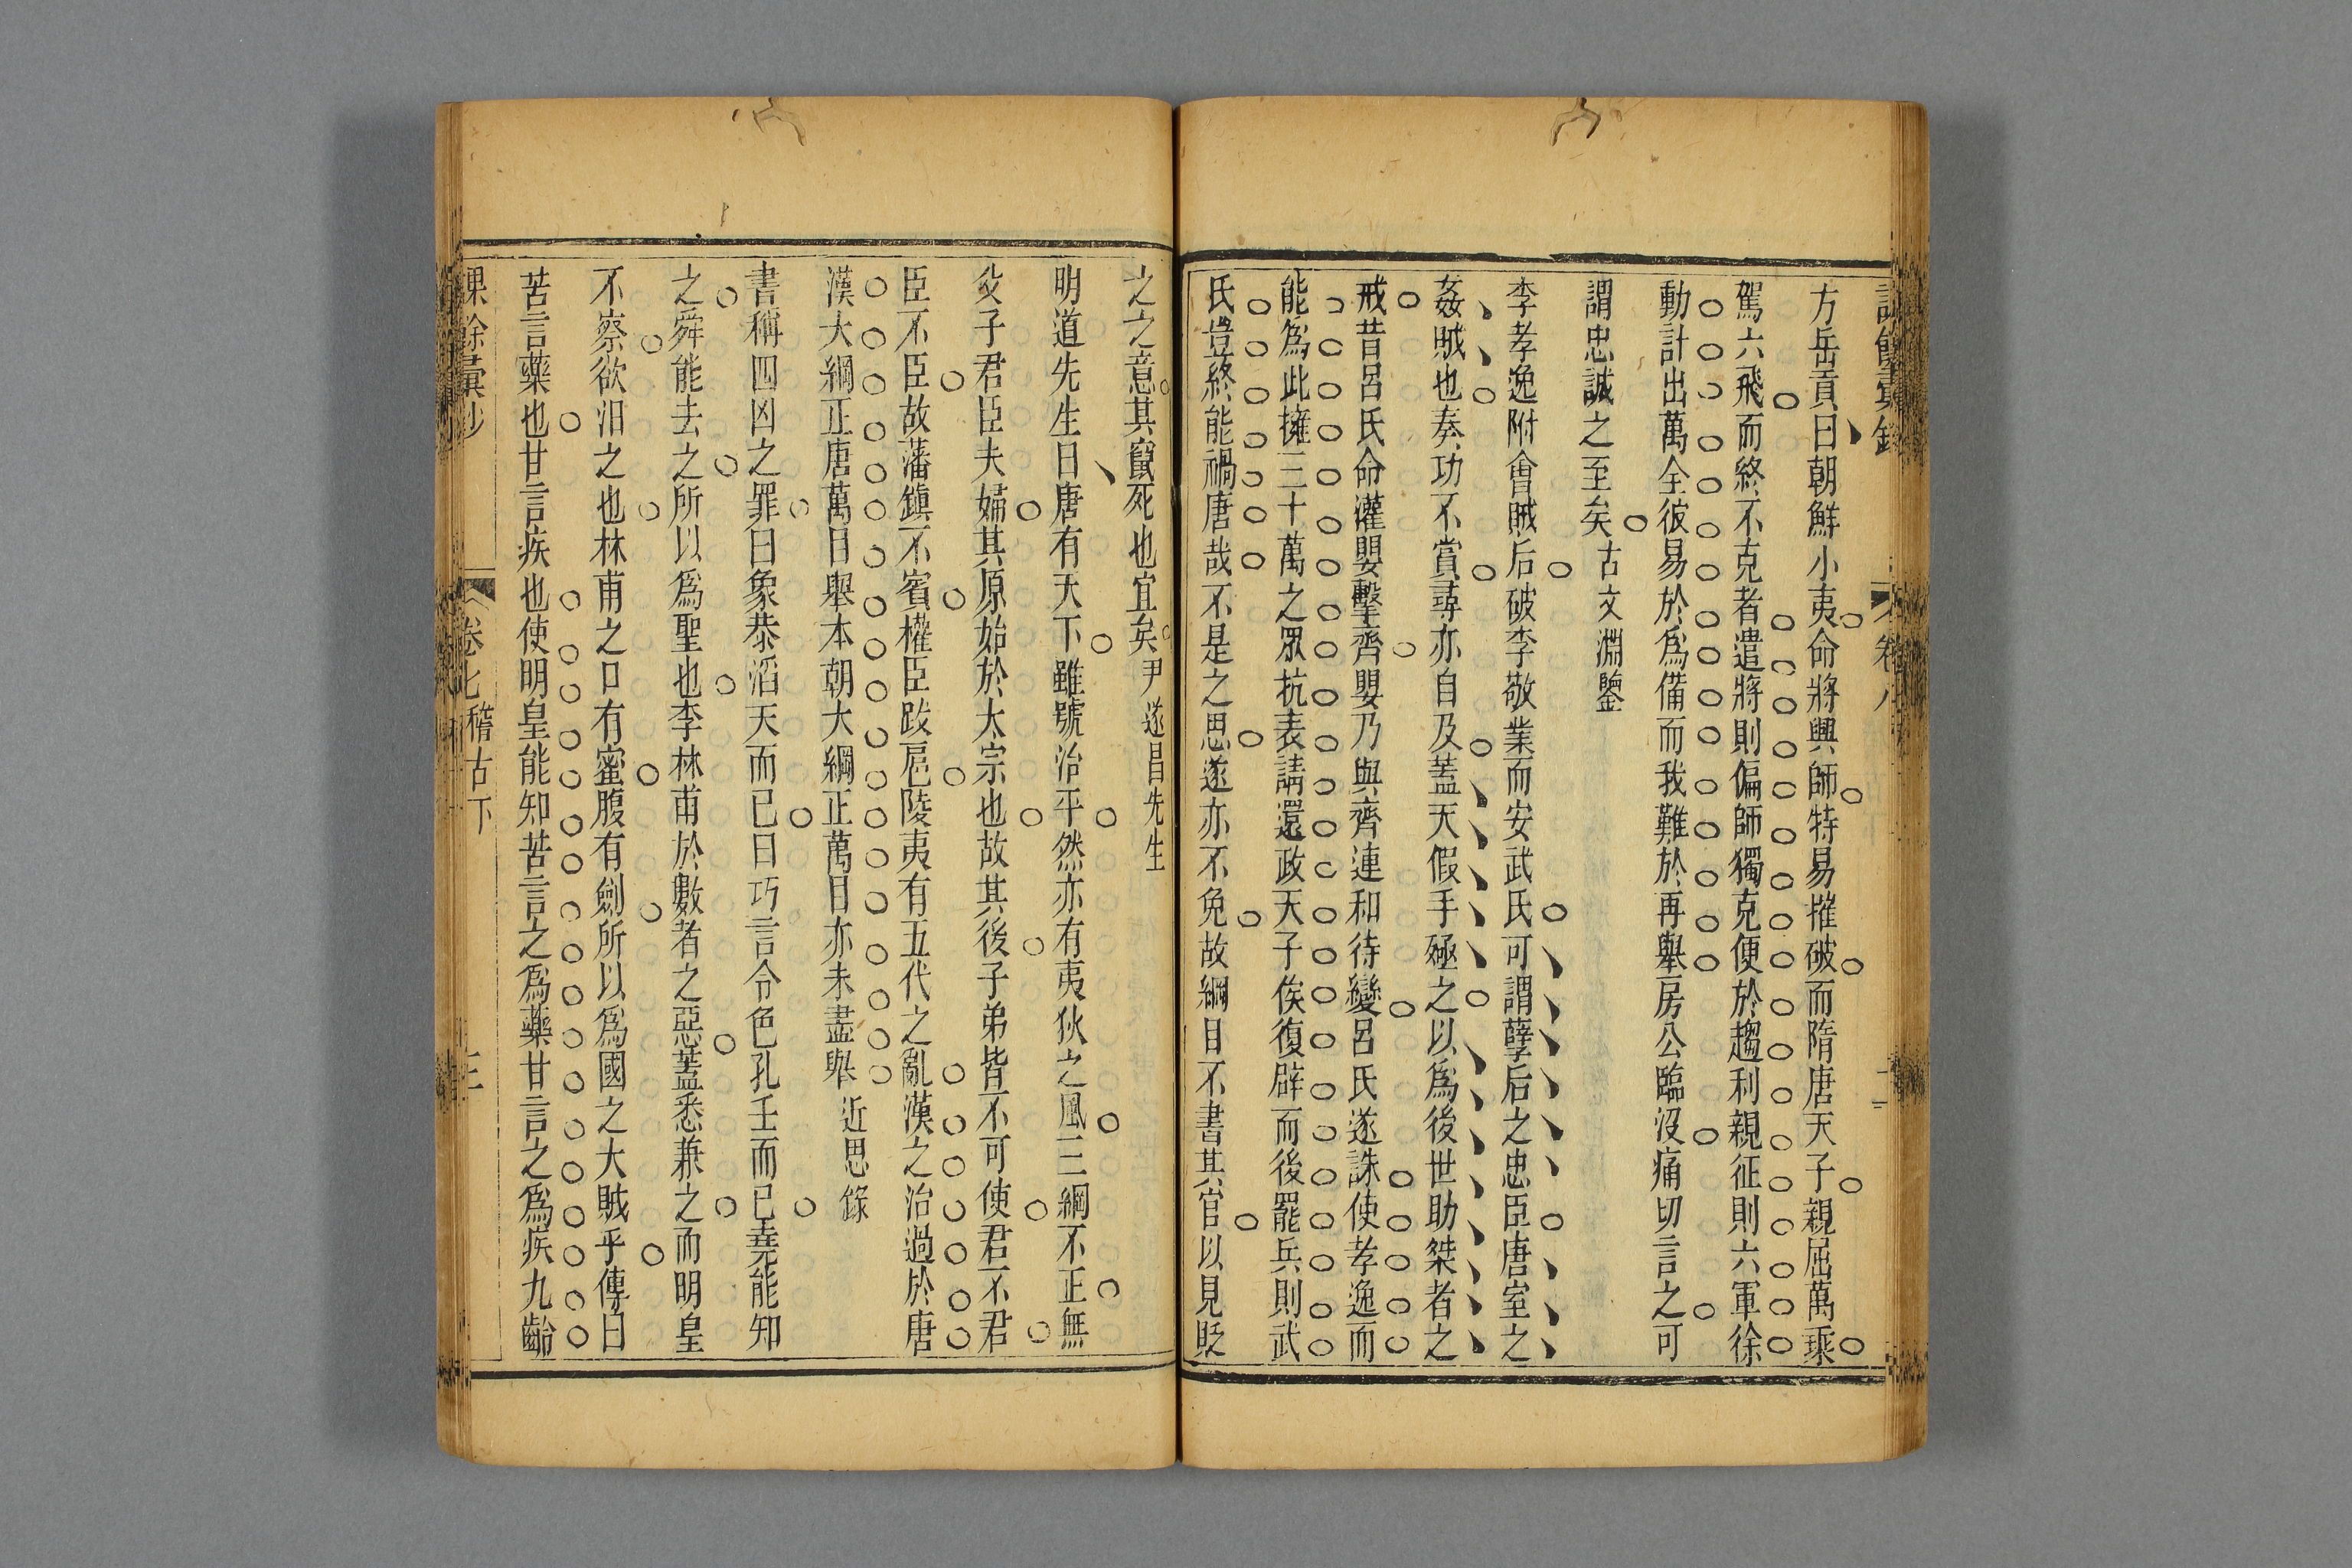 方岳貢曰朝鮮小夷命將興師特易摧破而隋唐天子親屈萬乘
駕六飛而終不克者遣將則偏師獨克便於趨利親征則六軍徐
動計出萬全彼易於爲備而我難於再舉房公臨沒痛切言之可
謂忠誠之至矣古文淵鑒
李孝逸附會賊后破李敬業而安武氏可謂孽后之忠臣唐室之
姦賊也奏功不賞尋亦自及蓋天假手殛之以爲後世助桀者之
戒昔呂氏命灌嬰擊齊嬰乃與齊連和待變呂氏遂誅使孝逸而
能爲此擁三十萬之眾抗表請還政天子俟復辟而後罷兵則武
氏豈終能禍唐哉不是之思遂亦不免故綱目不書其官以見貶
之之意其竄死也宜矣尹遂昌先生
明道先生曰唐有天下雖號治平然亦有夷狄之風三綱不正無
父子君臣夫婦其原始於太宗也故其後子弟皆不可使君不君
臣不臣故藩鎮不賓權臣跋扈陵夷有五代之亂漢之治過於唐
漢大綱正唐萬目舉本朝大綱正萬目亦未盡舉近思錄
書稱四凶之罪曰象恭滔天而已曰巧言令色孔壬而已堯能知
之舜能去之所以爲聖也李林甫於數者之惡蓋悉兼之而明皇
不察欲汨之也林甫之口有蜜腹有劍所以爲國之大賊乎傳曰
苦言藥也甘言疾也使明皇能知苦言之爲藥甘言之爲疾九齡
課餘彙鈔 卷七 稽古下